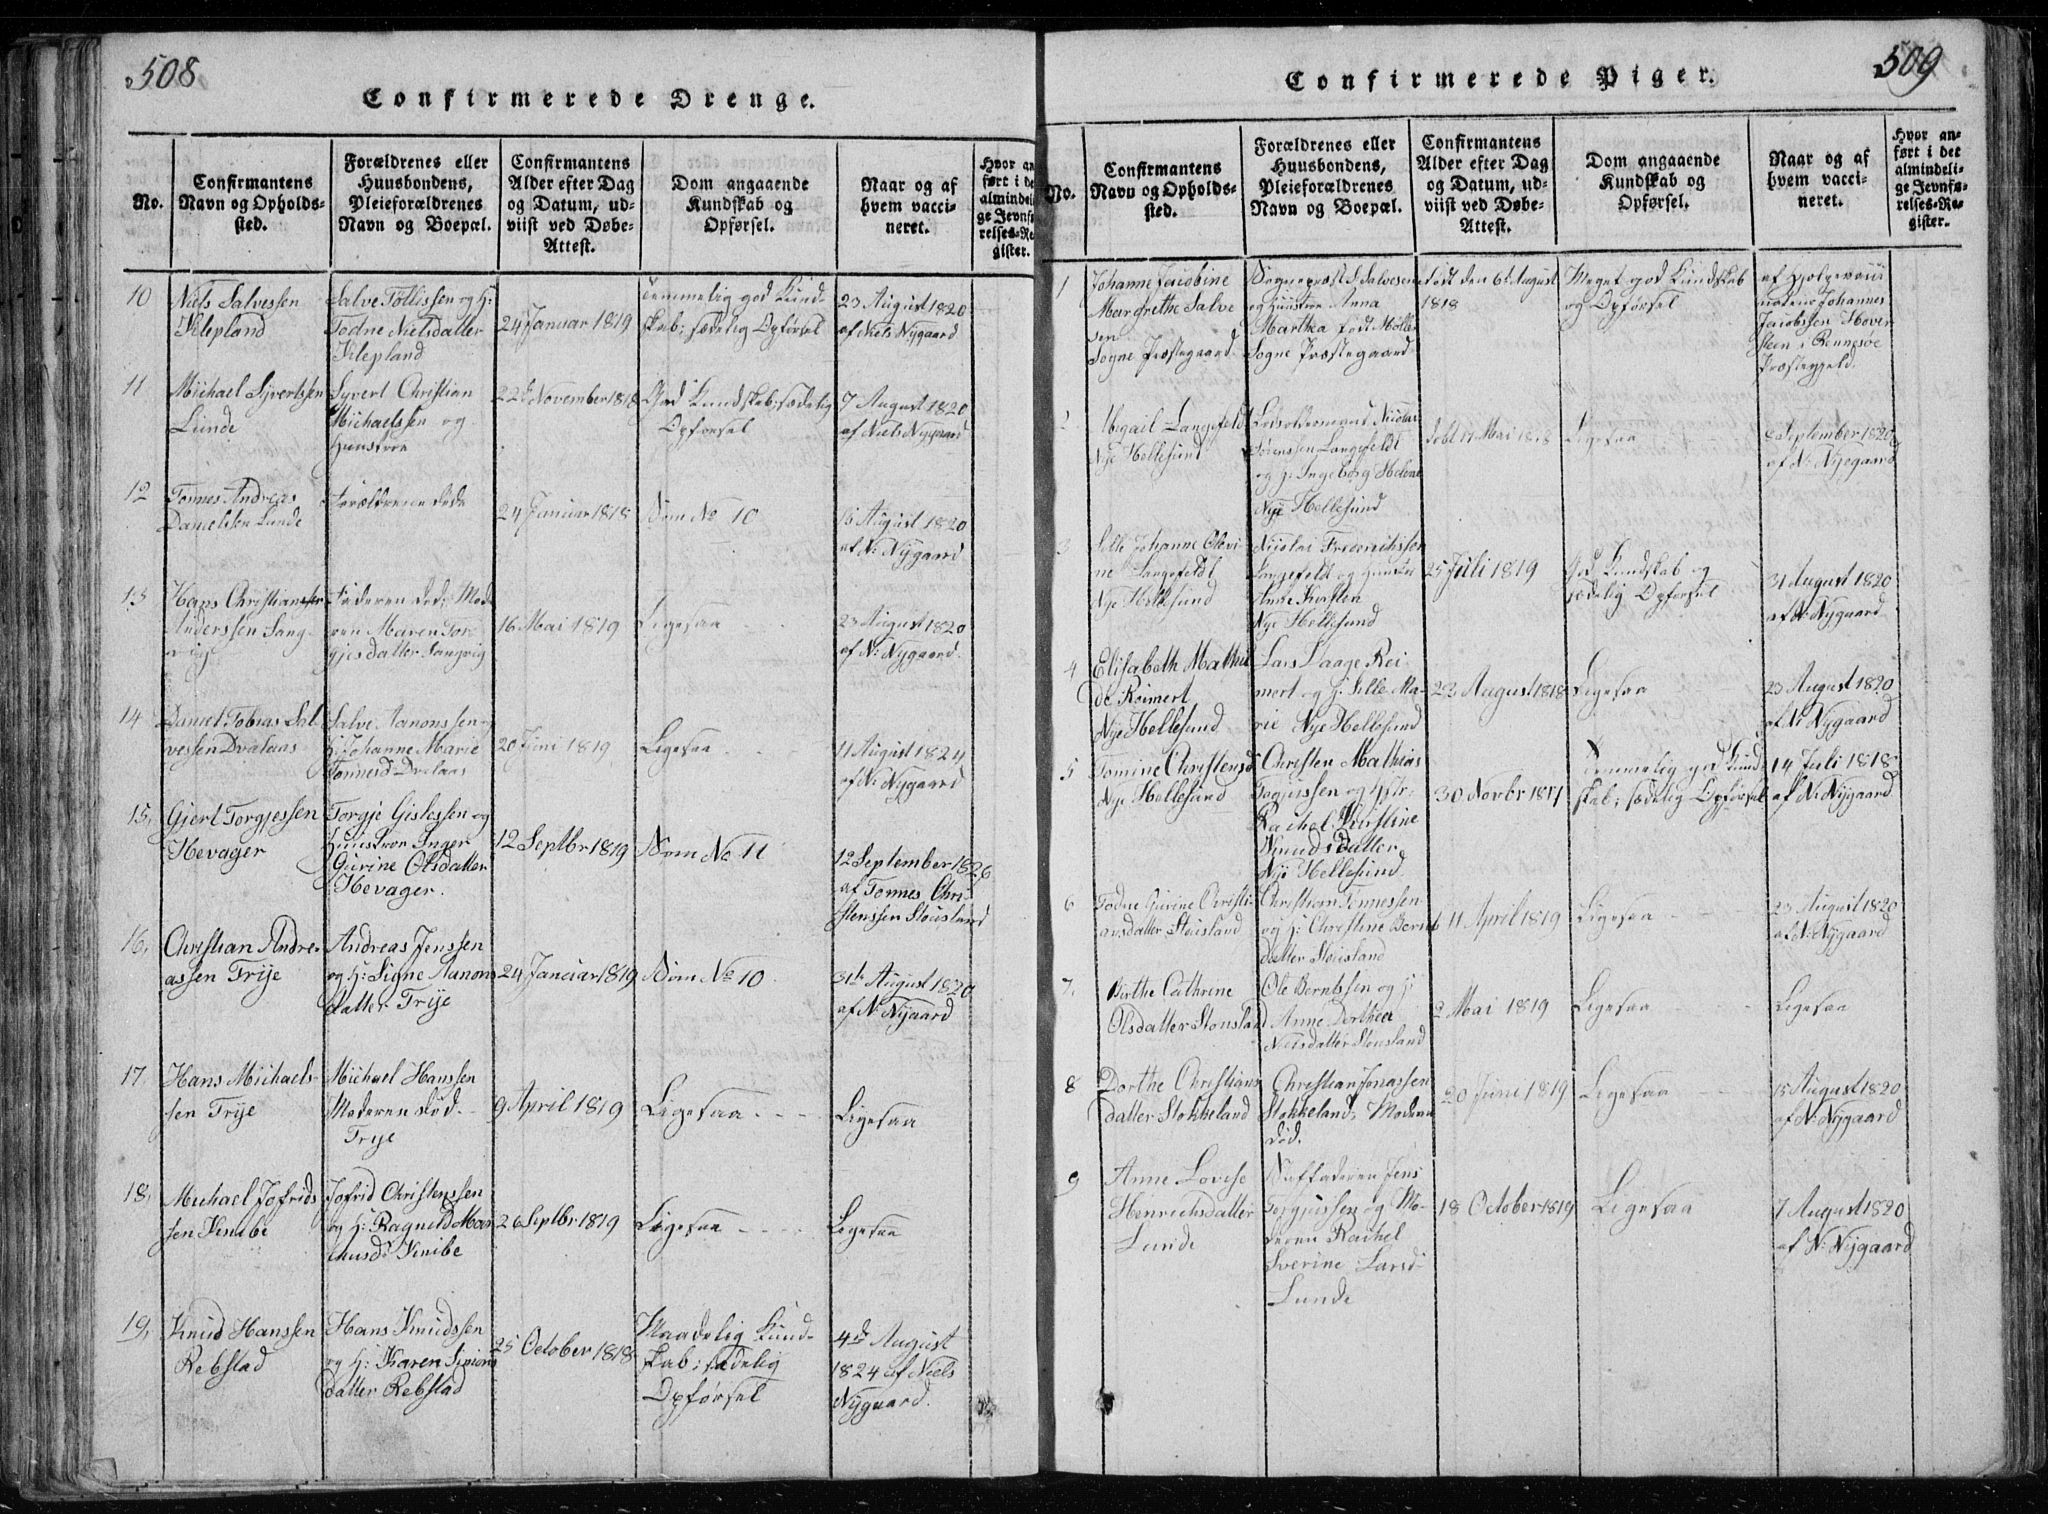 508
Confirmerede Drenge.
No.
Confirmantens
Navn og Opholds-
sted.
Forældrenes eller
Huusbondens,
Pleieforældrenes
Navn og Boepæl.
Confirmantens
Alder efter Dag
og Datum, ud-
viist ved Døbe-
Attest.
Dom angaaende
Kundskab og
Opførsel.
Naar og af
hvem vacci-
neret.
Hvor an-
ført i det
almindeli-
ge Jevnfø-
relses-Re-
gister.
10
Niels Salvessen
Klepland
Salve Tollissen og H:
Todne Nielsdatter
Klepland
24 Januar 1819
Temmelig god Kund-
skab; sædelig Opførsel
23 August 1820
af Niels Nygaard
11
Michael Syvertssen
Lunde
Syvert Christian
Michaelssen og
Huustroe
22d November 1818
God Kundskab; sædelig
Opførsel
7 August 1820
af Niels Nygaard
12
Tønnes Andreas
Danielsen Lunde
Forældrene døde
24 Januar 1818
Som No 10
15 August 1820
af N: Nygaard
13
Hans Christian
Anderssen Lang-
vig
Faderen død; Mode-
ren Maren Tor-
gjesdatter Langvig
16 Mai 1819
Ligesaa
23 August 1820
af N: Nygaard
14
Daniel Tobias Sal-
vessen Dvelaas
Salve Aanonssen og
H: Johanne Marie
Tønnesd: Dvelaas
20 Juni 1819
Ligesaa
11 August 1824
af N: Nygaard
15,
Gjert Torgjessen
Hevager
Torgje Gislessen og
Huustroe Inger
Gurine Olsdatter
Hevager.
12 Septbr 1819
Som No 11
12 September 1826
af Tønnes Chri-
stenssen Stousland
16,
Christian Andre-
assen Trye
Andreas Jenssen
og H: Signe Aanons
datter Trye
24 Januar 1819
Som No 10
31te August 1820
af N: Nygaard
17,
Hans Michaels-
sen Trye
Michael Hanssen
Moderen død.
Trye
9 April 1819
Ligesaa
Ligesaa
18,
Michael Jofrids
sen Knibe
Jofrid Christenssen
og H: Ragnild
Knibe
26 Septbr 1819
Ligesaa
Ligesaa
19,
Knud Hanssen
Rebstad
Hans Knudssen
og H: Karen Simons
datter Rebstad
25 October 1818
Maadelig Kund-
skab; sædelig
Opførsel
4de August
1824 af Niels
Nygaard.
509
Confirmerede Piger.
No.
Confirmantens
Navn og Opholds-
sted.
Forældrenes eller
Huusbondens,
Pleieforældrenes
Navn og Boepæl.
Confirmantens
Alder efter Dag
og Datum, ud-
viist ved Døbe-
Attest.
Dom angaaende
Kundskab og
Opførsel.
Naar og af
hvem vacci-
neret.
Hvor an-
ført i det
almindeli-
ge Jevnfø-
relses-Re-
gister.
1
Johanne Jacobine
Margrethe Salve
sen
Sogne Præstegaard
Sognepræst S Salvesen
og Huustroe Anna
Martha født Møller
Sogne Præstegaard
Født den 6te August
1818
Meget god Kundskab
og Opførsel
af
Johannes
Jacobssen Hover
steen i Rennesøe
Præstegjeld.
2
Abigail Langefeldt
Nye Hellesund
Lodsoldermand Nicolai
Sørenssen Langefeldt
og H: Ingeborg Helene
Nye Hellesund
døbt 17 Mai 1818
Ligesaa
September 1820
af N: Nygaard
3
Sille Johanne Olevi-
ne Langefeldt
Nye Hellesund
Nicolai Frederichssen
Langefeldt og Huustr
Anne Kirsten
Nye Hellesund
25 Juli 1819
God Kundskab og
sædelig Opførsel
31 August 1820
af N: Nygaard
4
Elisabeth Mathil
de Reimert
Nye Hellesund
Lars Laage Rei-
mert og H: Sille Ma-
rie Nye Hellesund
22 August 1818
Ligesaa
23 August 1820
af N Nygaard
5
Tomine Christensd
Nye Hellesund
Christen Mathias
Torjussen og Hstr:
Rachel Kirstine
Knudsdatter
Nye Hellesund
30 Novbr 1817
Temmelig god Kund-
skab; sædelig Opførsel
14 Juli 1818
af N: Nygaard
6
Todne Gurine Christi-
ansdatter Stousland
Christian Tønnessen
og H: Christine Bernt
datter Stousland
11 April 1819
Ligesaa
23 August 1820
af N: Nygaard
7,
Birthe Cathrine
Olsdatter Stousland
Ole Berntssen og H:
Anne Dorthea
Nielsdatter Stousland
2 Mai 1819
Ligesaa
Ligesaa
8
Dorthe Christians
datter Stokkeland
Christian Jonassen
Stokkeland, Moderen
død.
20 Juni 1819
Ligesaa
15 August 1820
af N: Nygaard
9
Anne Lovise
Henrichsdatter
Lunde
Stiffaderen Jens
Torgjussen og Mo-
deren Rachel
Sverine Larsd
Lunde
18 October 1819
Ligesaa
7 August 1820
af N: Nygaard